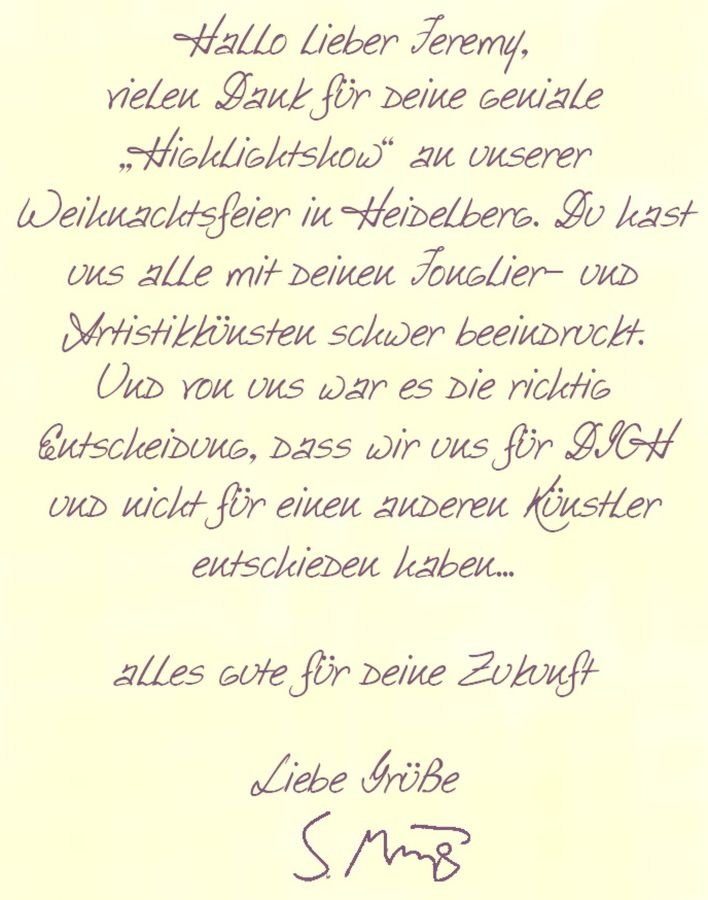 Hallo lieber Jeremy,
vielen Dank für deine geniale
„Highlightshow“ an unserer
Weihnachtsfeier in Heidelberg. Du hast
uns alle mit deinen Jonglier- und
Artistikkünsten schwer beeindruckt.
Und von uns war es die richtig
Entscheidung, dass wir uns für DICH
und nicht für einen anderen Künstler
entschieden haben...
alles gute für deine Zukunft
Liebe Grüße
S.